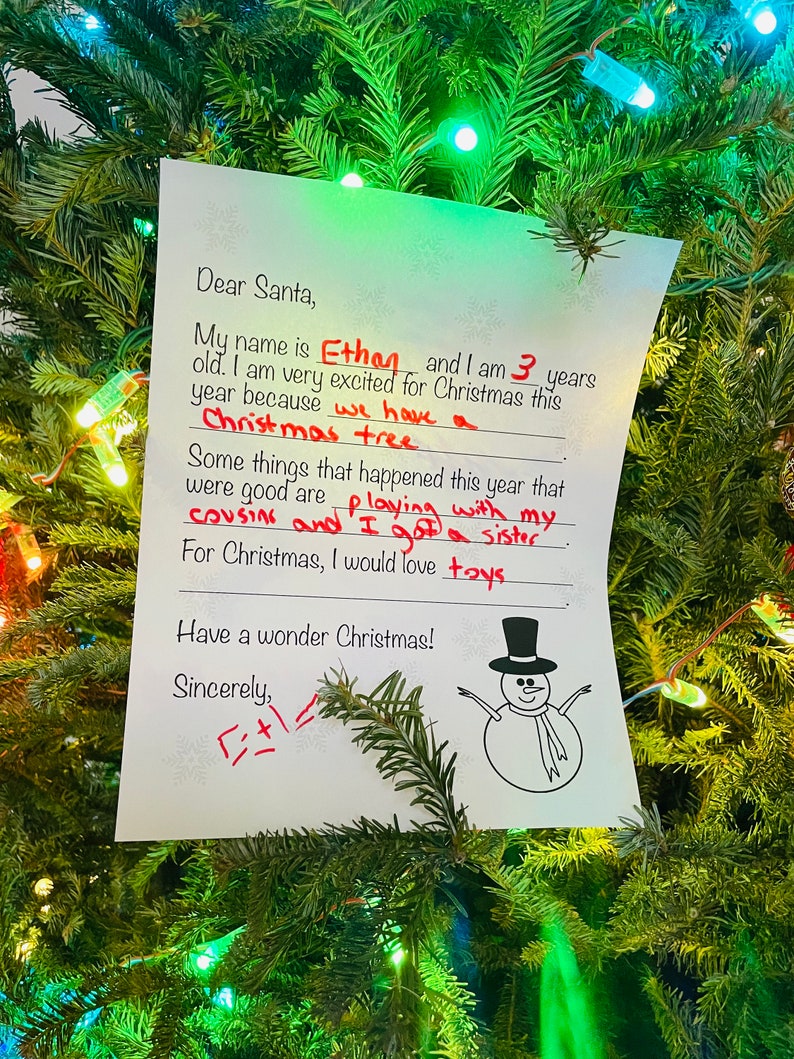 Dear Santa,
My name is Ethan and I am 3 years
old. I am very excited for Christmas this
year because we have a
Christmas tree.
Some things that happened this year that
were good are playing with my
cousins and I got a sister.
For Christmas, I would love toys
.
Have a wonder Christmas!
Sincerely,